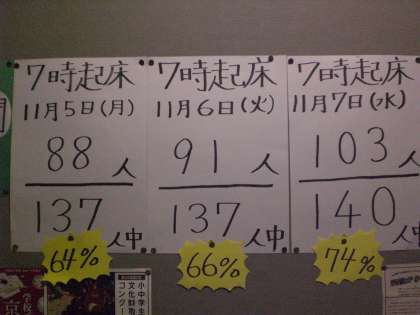 7時起床
11月5日(月)
88人
137人中
64%
7時起床
11月6日(火)
91人
137人中
66%
7時起床
11月7日(水)
103人
140人中
74%
小中学生
文化財取
コンク